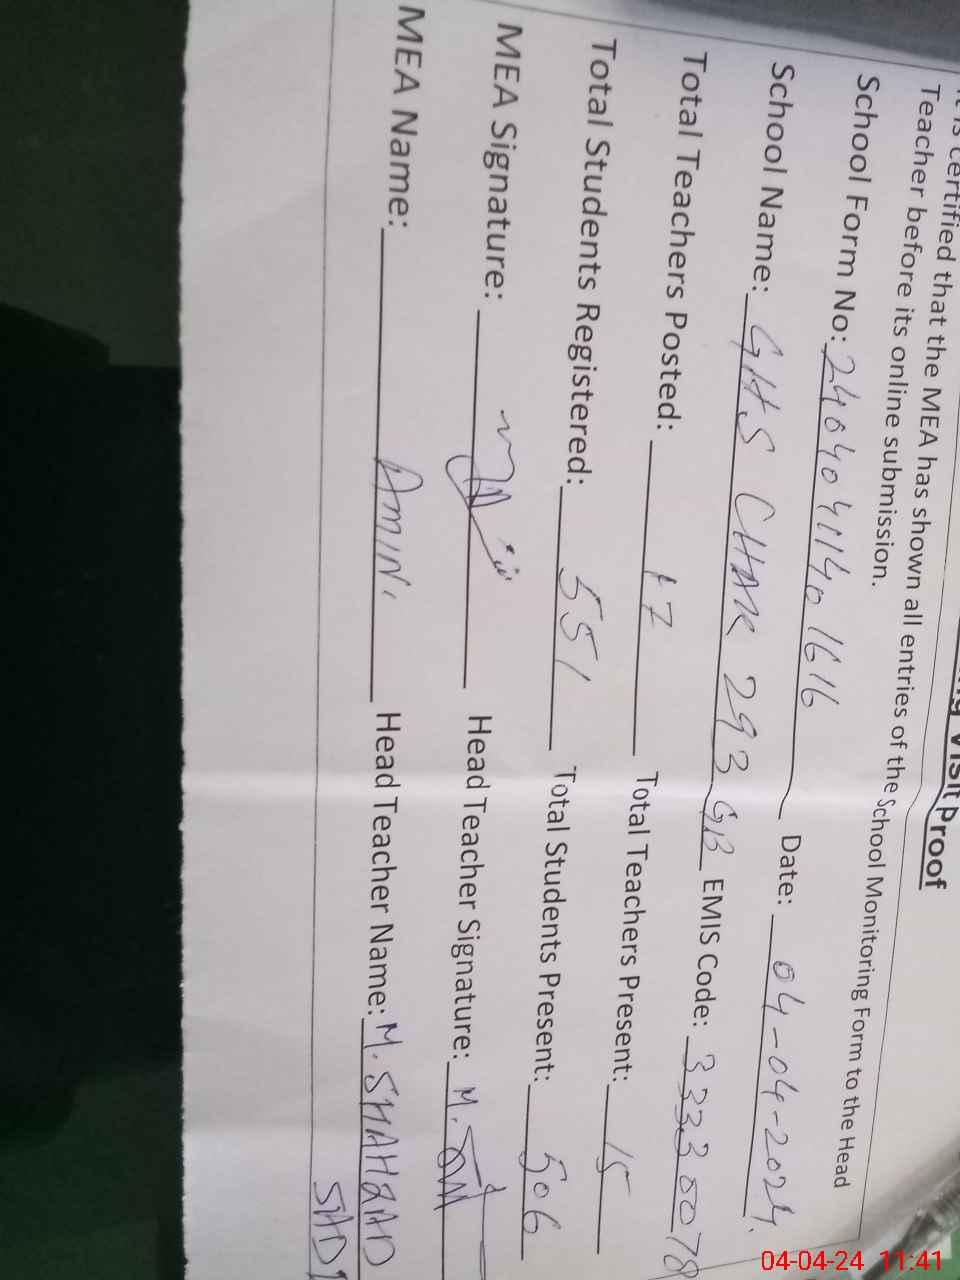 ng Visit Proof
It is certified that the MEA has shown all entries of the School Monitoring Form to the Head
Teacher before its online submission.
School Form No: 24040411401616 Date: 04-04-2024.
School Name: GHS CHAK 293 GB EMIS Code: 33330078
Total Teachers Posted: 17 Total Teachers Present: 15
Total Students Registered: 551 Total Students Present: 506
MEA Signature: Head Teacher Signature: M.
MEA Name: AMIN Head Teacher Name: M. SHAHZAD
04-04-24 11:41